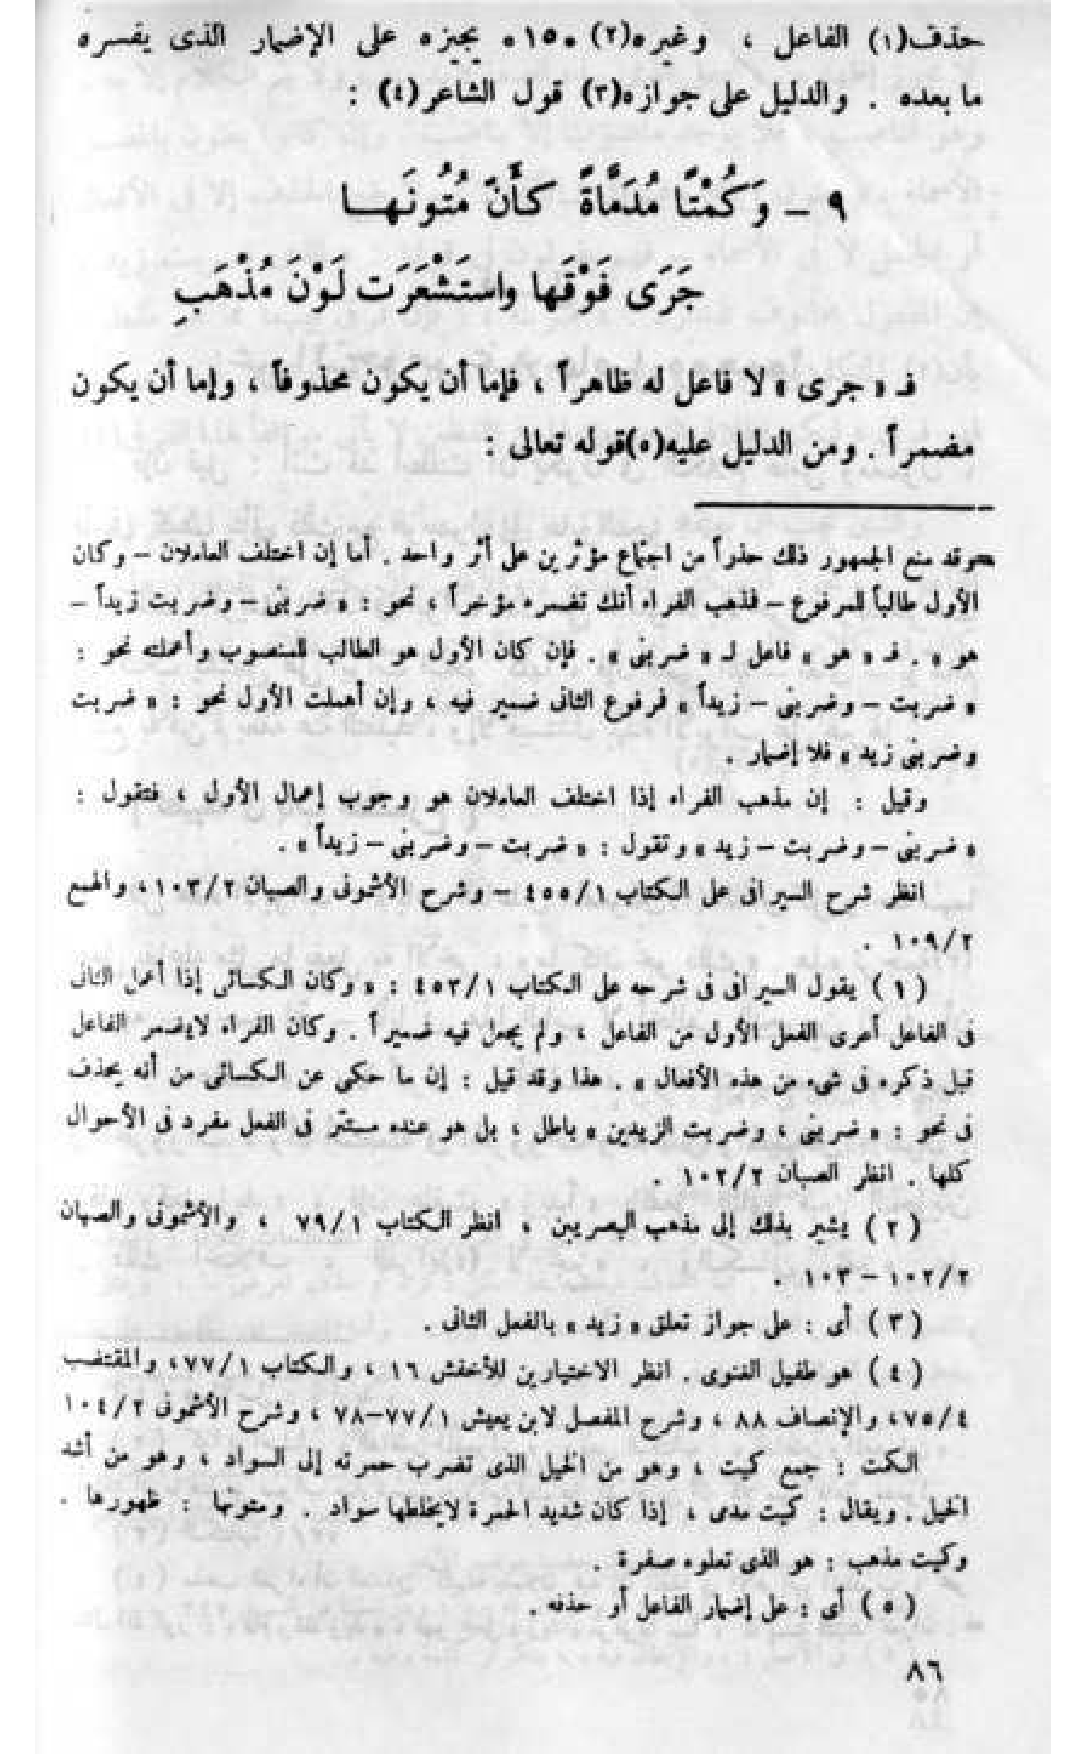 حذف(١) الفاعل ، وغيره(٢) «١٥» يجيزه على الإضمار الذى يفسره
ما بعده . والدليل على جوازه(٣) قول الشاعر(٤) :
٩ – وَكُمْتًا مُدَمَّاةً كأَنَّ مُتُونَهــا
جَرَى فَوْقَها واستَشْعَرَت لَوْنَ مُذْهَبِ
فـ « جرى » لا فاعل له ظاهراً ، فإما أن يكون محذوفاً ، وإما أن يكون
مضمراً . ومن الدليل عليه(٥)قوله تعالى :
=وقد منع الجمهور ذلك حذراً من اجتماع مؤثرين على أثر واحد . أما إن اختلف العاملان – وكان
الأول طالباً للمرفوع – فذهب الفراء أنك تضمره مؤخراً ، نحو : « ضربنى – وضربت زيداً –
هو » . فـ « هو » فاعل لـ « ضربنى » . فإن كان الأول هو الطالب للمنصوب وأعملته نحو :
« ضربت – وضربنى – زيداً » فرفوع الثانى ضمير فيه ، وإن أهملت الأول نحو : « ضربت
وضربنى زيد » فلا إضمار .
وقيل : إن مذهب الفراء إذا اختلف العاملان هو وجوب إعمال الأول ، فتقول :
« ضربنى – وضربت – زيد » وتقول : « ضربت – وضربنى – زيداً » .
انظر شرح السيرافى على الكتاب ٤٥٥/١ – وشرح الأشمونى والصبان ١٠٣/٢ ، والهمع
١٠٩/٢ .
( ١ ) يقول السيرافى فى شرحه على الكتاب ٤٥٣/١ : « وكان الكسائى إذا أعمل الثانى
فى الفاعل أعرى الفعل الأول من الفاعل ، ولم يجعل فيه ضميراً . وكان الفراء لايضمر الفاعل
قبل ذكره فى شىء من هذه الأفعال » . هذا وقد قيل : إن ما حكى عن الكسائى من أنه يحذف
فى نحو : « ضربنى ، وضربت الزيدين » باطل ، بل هو عنده مستتر فى الفعل مفرد فى الأحوال
كلها . انظر الصبان ١٠٢/٢ .
( ٢ ) يشير بذلك إلى مذهب البصريين ، انظر الكتاب ٧٩/١ ، والأشمونى والصبان
١٠٢/٢ – ١٠٣ .
( ٣ ) أى : على جواز تعلق « زيد » بالفعل الثانى .
( ٤ ) هو طفيل الغنوى . انظر الاختيارين للأخفش ١٦ ، والكتاب ٧٧/١، والمقتضب
٧٥/٤، والإنصاف ٨٨ ، وشرح المفصل لابن يعيش ٧٧/١–٧٨ ، وشرح الأشمونى ١٠٤/٢
الكمت : جمع كميت ، وهو من الخيل الذى تضرب حمرته إلى السواد ، وهو من أشد
الخيل . ويقال : كميت مدمى ، إذا كان شديد الحمرة لايخلطها سواد . ومتونها : ظهورها .
وكميت مذهب : هو الذى تعلوه صفرة .
( ٥ ) أى : على إضمار الفاعل أو حذفه .
٨٦